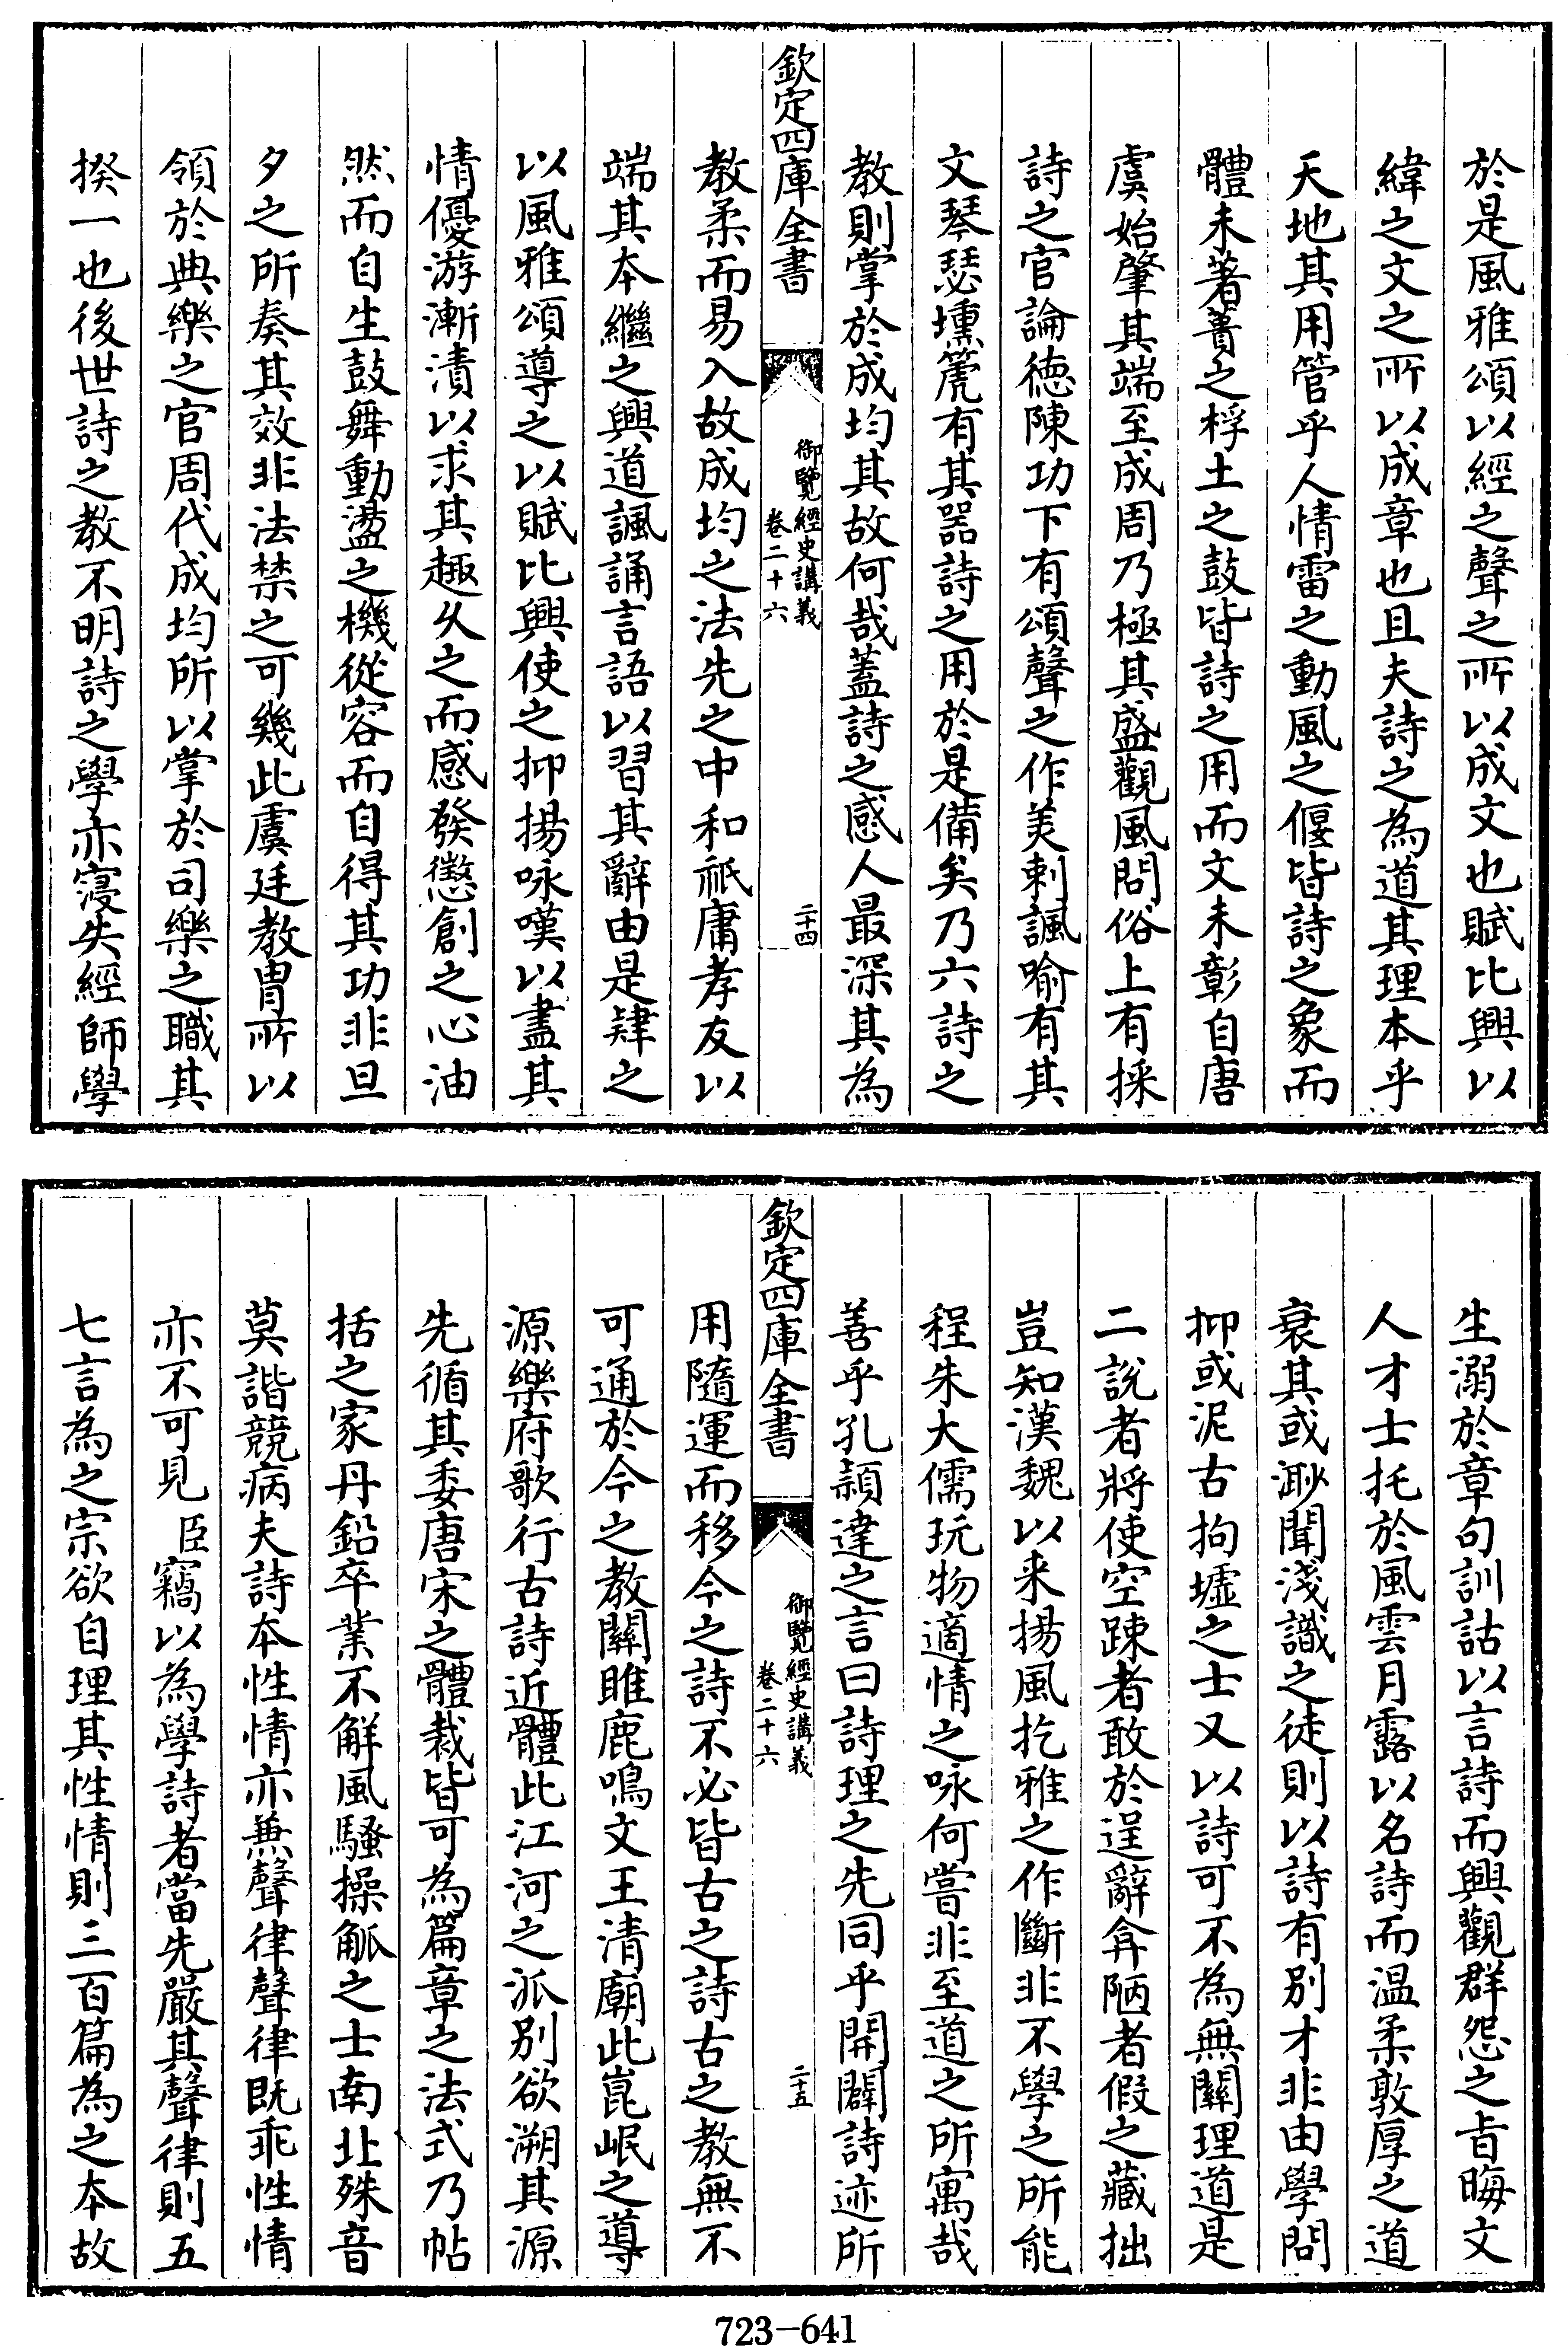 於是風雅頌以經之聲之所以成文也賦比興以
緯之文之所以成章也且夫詩之為道其理本乎
天地其用管乎人情雷之動風之偃皆詩之象而
體未著蕢之桴土之鼓皆詩之用而文未彰自唐
虞始肇其端至成周乃極其盛觀風問俗上有採
詩之官論德陳功下有頌聲之作美刺諷喻有其
文琴瑟壎箎有其器詩之用於是備矣乃六詩之
教則掌於成均其故何哉蓋詩之感人最深其為
欽定四庫全書
御覽經史講義
卷二十六
二十四
教柔而易入故成均之法先之中和祇庸孝友以
端其本繼之興道諷誦言語以習其辭由是肄之
以風雅頌導之以賦比興使之抑揚咏嘆以盡其
情優游漸漬以求其趣久之而感發懲創之心油
然而自生鼓舞動盪之機從容而自得其功非旦
夕之所奏其效非法禁之可幾此虞廷教胄所以
領於典樂之官周代成均所以掌於司樂之職其
揆一也後世詩之教不明詩之學亦寖失經師學
生溺於章句訓詁以言詩而興觀群怨之旨晦文
人才士托於風雲月露以名詩而溫柔敦厚之道
衰其或渺聞淺識之徒則以詩有別才非由學問
抑或泥古拘墟之士又以詩可不為無關理道是
二說者將使空踈者敢於逞辭弇陋者假之藏拙
豈知漢魏以来揚風扢雅之作斷非不學之所能
程朱大儒玩物適情之咏何嘗非至道之所寓哉
善乎孔穎達之言曰詩理之先同乎開闢詩迹所
欽定四庫全書
御覽經史講義
卷二十六
二十五
用隨運而移今之詩不必皆古之詩古之教無不
可通於今之教關雎鹿鳴文王清廟此崑岷之導
源樂府歌行古詩近體此江河之派別欲溯其源
先循其委唐宋之體裁皆可為篇章之法式乃帖
括之家丹鉛卒業不解風騷操觚之士南北殊音
莫諧競病夫詩本性情亦兼聲律聲律既乖性情
亦不可見臣竊以為學詩者當先嚴其聲律則五
七言為之宗欲自理其性情則三百篇為之本故
723-641